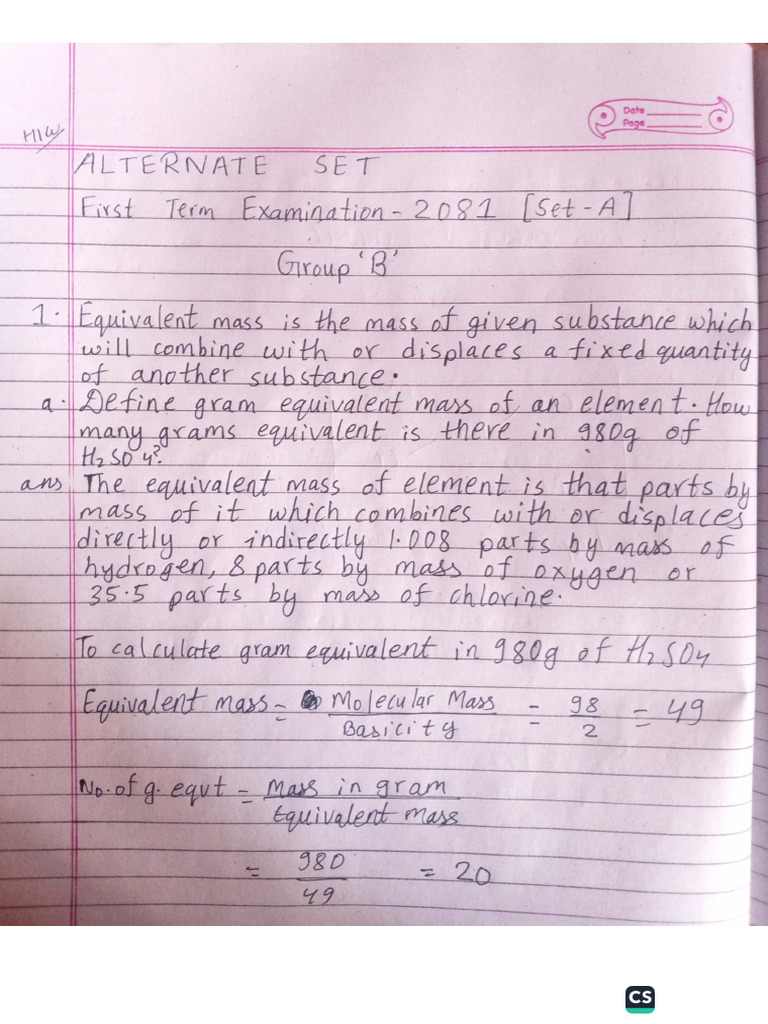 Date
Page
H/W
ALTERNATE SET
First Term Examination - 2081 [Set - A]
Group 'B'
1. Equivalent mass is the mass of given substance which
will combine with or displaces a fixed quantity
of another substance.
a. Define gram equivalent mass of an element. How
many grams equivalent is there in 980g of
H₂SO4?
ans The equivalent mass of element is that parts by
mass of it which combines with or displaces
directly or indirectly 1.008 parts by mass of
hydrogen, 8 parts by mass of oxygen or
35.5 parts by mass of chlorine.
To calculate gram equivalent in 980g of H₂SO4
Equivalent mass = Molecular Mass / Basicity = 98 / 2 = 49
No. of g. eqvt = Mass in gram / Equivalent mass
= 980 / 49 = 20
CS